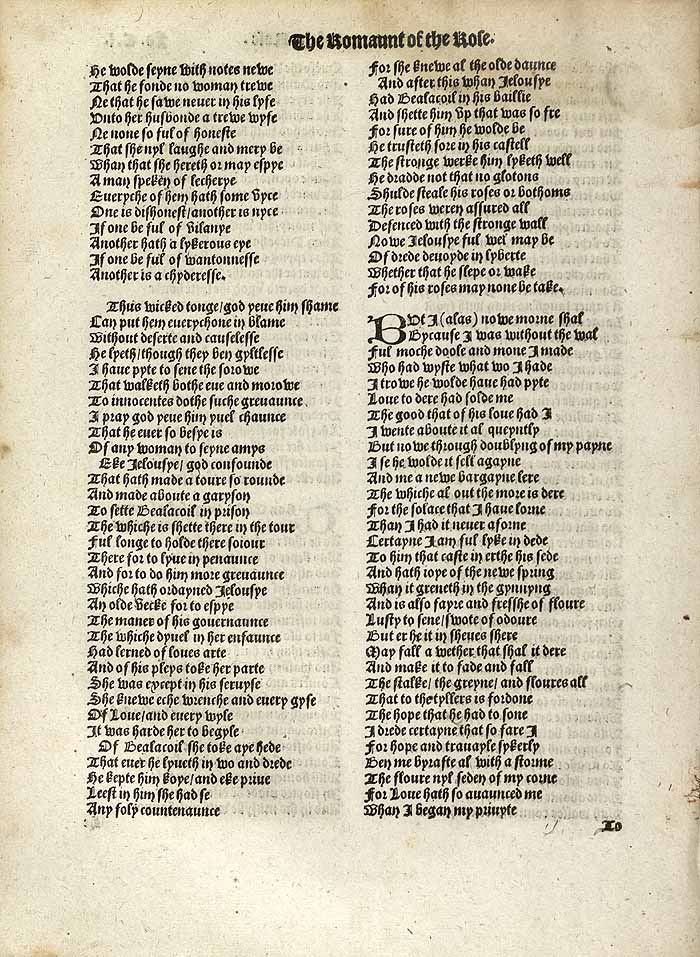 The Romaunt of the Rose.
He wolde seyne with notes newe
That he fonde no woman trewe
Ne that he sawe neuer in his lyfe
Vnto her husbonde a trewe wyfe
Ne none so ful of honeste
That she nyl laughe and mery be
Whan that she hereth or may espye
A man speken of lecherye
Eueryche of hem hath some vyce
One is dishonest/another is nyce
If one be ful of vilanye
Another hath a lykerous eye
If one be ful of wantonnesse
Another is a chyderesse.
Thus wicked tonge/god yeue him shame
Can put hem euerychone in blame
Without deserte and causelesse
He lyeth/though they ben gyltlesse
I haue pyte to sene the sorowe
That walketh bothe eue and morowe
To innocentes dothe suche greuaunce
I pray god yeue him yuel chaunce
That he euer so besye is
Of any woman to seyne amys
Eke Jelousye/god confounde
That hath made a toure so rounde
And made aboute a garyson
To sette Bealacoil in prison
The whiche is shette there in the tour
Ful longe to holde there soiour
There for to lyue in penaunce
And for to do him more greuaunce
Whiche hath ordayned Jelousye
An olde vecke for to espye
The maner of his gouernaunce
The whiche dyuel in her enfaunce
Had lerned of loues arte
And of his pleys toke her parte
She was except in his seruyse
She knewe eche wrenche and euery gyse
Of Loue/and euery wyse
It was harde her to begyle
Of Bealacoil she toke aye hede
That euer he lyueth in wo and drede
He kepte him koye/and eke priue
Leest in him she had se
Any foly countenaunce
For she knewe al the olde daunce
And after this whan Jelousye
Had Bealacoil in his baillie
And shette him vp that was so fre
For sure of him he wolde be
He trusteth sore in his castell
The stronge werke him lyketh well
He dradde not that no glotons
Shulde steale his roses or bothoms
The roses weren assured all
Defenced with the stronge wall
Nowe Jelousye ful wel may be
Of drede deuoyde in lyberte
Whether that he slepe or wake
For of his roses may none be take.
BVt I (alas) nowe morne shal
Bycause I was without the wal
Ful moche doole and mone I made
Who had wyste what wo I hade
I trowe he wolde haue had pyte
Loue to dere had solde me
The good that of his loue had I
I wente aboute it al queyntly
But nowe through doublyng of my payne
I se he wolde it sell agayne
And me a newe bargayne lere
The whiche al out the more is dere
For the solace that I haue lorne
Than I had it neuer aforne
Certayne I am ful lyke in dede
To him that caste in erthe his sede
And hath ioye of the newe spring
Whan it greneth in the gynnyng
And is also fayre and fresshe of floure
Lusty to sene/swote of odoure
But er he it in sheues shere
May fall a wether that shal it dere
And make it to fade and fall
The stalke/the greyne/and floures all
That to thetyllers is fordone
The hope that he had to sone
I drede certayne that so fare I
For hope and trauayle sykerly
Ben me byrafte al with a storme
The floure nyl seden of my corne
For Loue hath so auaunced me
Whan I began my priuyte
To